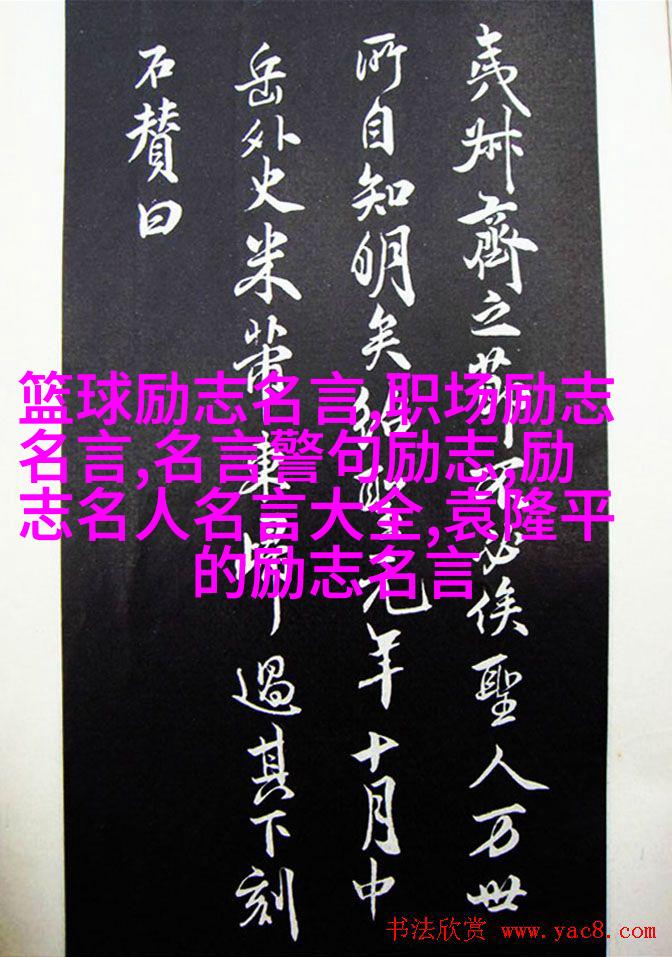 夷齊之
聖人万世
所自知明矣紹聖元年十月中
岳外史米芾東歸過其下刻
石賛曰
篮球励志名言,职场励志
名言,名言警句励志,励
志名人名言大全,袁隆平
的励志名言
书法欣赏 www.yac8.com